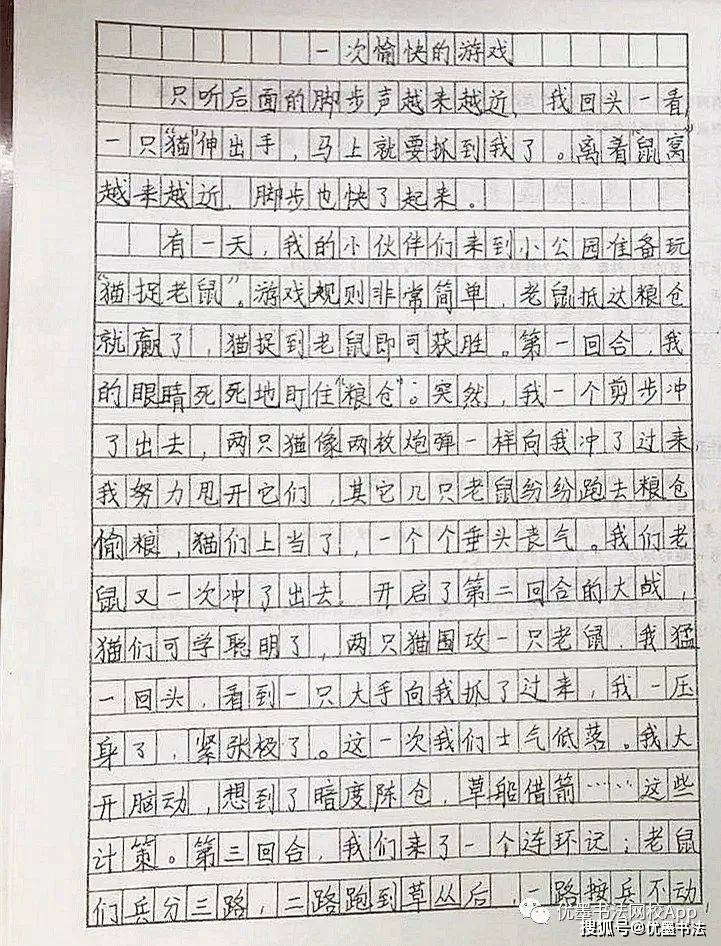 一次愉快的游戏
只听后面的脚步声越来越近，我回头一看，
一只“猫”伸出手，马上就要抓到我了。离着“鼠窝”
越来越近，脚步也快了起来。
有一天，我的小伙伴们来到小公园准备玩
“猫捉老鼠”。游戏规则非常简单，老鼠抵达粮仓
就赢了，猫捉到老鼠即可获胜。第一回合，我
的眼睛死死地盯住“粮仓”。突然，我一个剪步冲
了出去，两只猫像两枚炮弹一样向我冲了过来，
我努力甩开它们，其它几只老鼠纷纷跑去粮仓
偷粮，猫们上当了，一个个垂头丧气。我们老
鼠又一次冲了出去，开启了第二回合的大战，
猫们可学聪明了，两只猫围攻一只老鼠，我猛
一回头，看到一只大手向我抓了过来，我一压
身了，紧张极了。这一次我们士气低落。我大
开脑动，想到了暗度陈仓，草船借箭……这些
计策。第三回合，我们来了一个连环记；老鼠
们兵分三路，二路跑到草丛后，一路按兵不动
优墨书法网校App
搜狐号@优墨书法